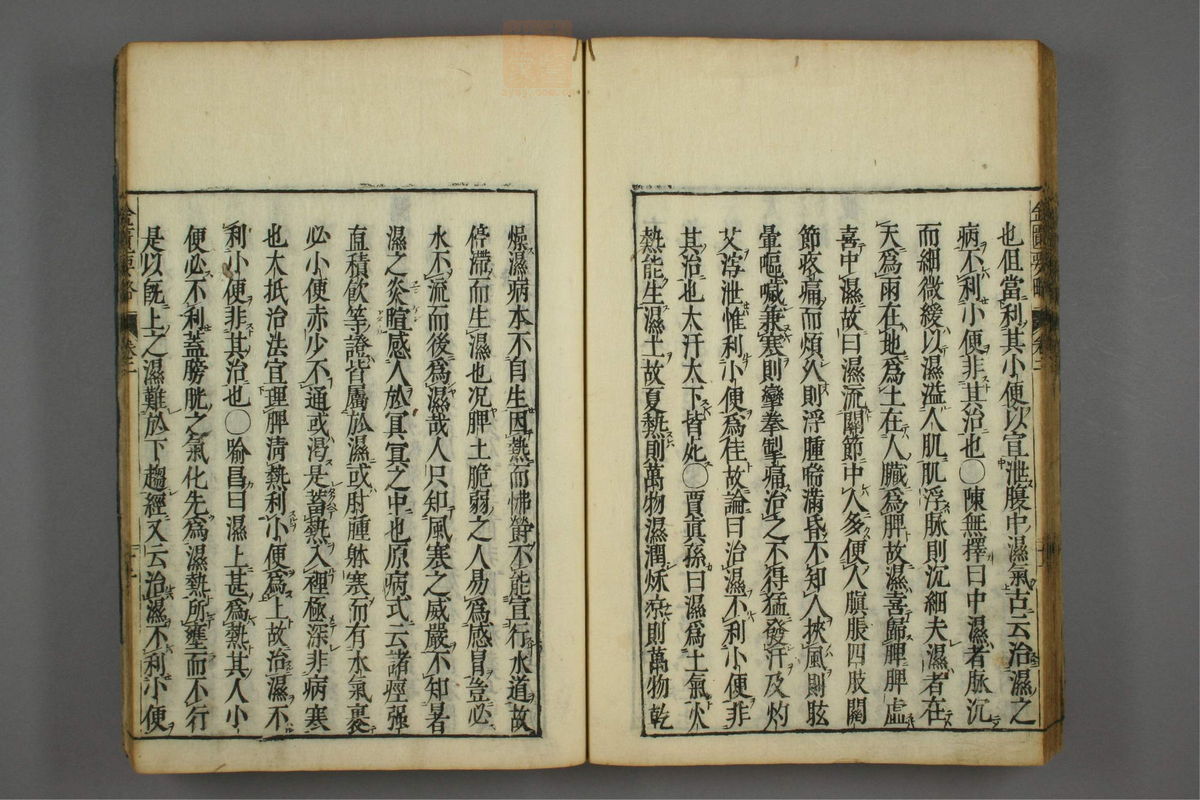 也但當利其小便以宣泄腹中濕氣古云治濕之
病不利小便非其治也〇陳無擇曰中濕者脉沉
而細微緩以濕溢人肌肌浮脉則沉細夫濕者在
天爲雨在地爲土在人臟爲脾故濕喜歸脾脾虚
喜中濕故曰濕流關節中人多便人䐜脹四肢關
節疼痛而煩久則浮腫喘滿昏不知人挾風則眩
暈嘔噦兼寒則攣拳掣痛治之不得猛發汗及灼
艾瀉泄惟利小便爲佳故論曰治濕不利小便非
其治也太汗太下皆死〇賈眞孫曰濕爲土氣火
熱能生濕土故夏熱則萬物濕潤秌凉則萬物乾
燥濕病本不自生因熱而怫欝不能宣行水道故
停滯而生濕也况脾土脆弱之人易爲感冒豈必
水不流而後爲濕哉人只知風寒之威嚴不知暑
濕之炎暄感人於冥冥之中也原病式云諸痙强
直積飲等證皆屬於濕或胕腫躰寒而有水氣裏
必小便赤少不通或渇是蓄熱入裡極深非病寒
也太抵治法宜理脾淸熱利小便爲上故治濕不
利小便非其治也〇喻昌曰濕上甚爲熱其人小
便必不利蓋膀胱之氣化先爲濕熱所壅而不行
是以旣上之濕難於下趨經又云治濕不利小便
金匱要略
卷二